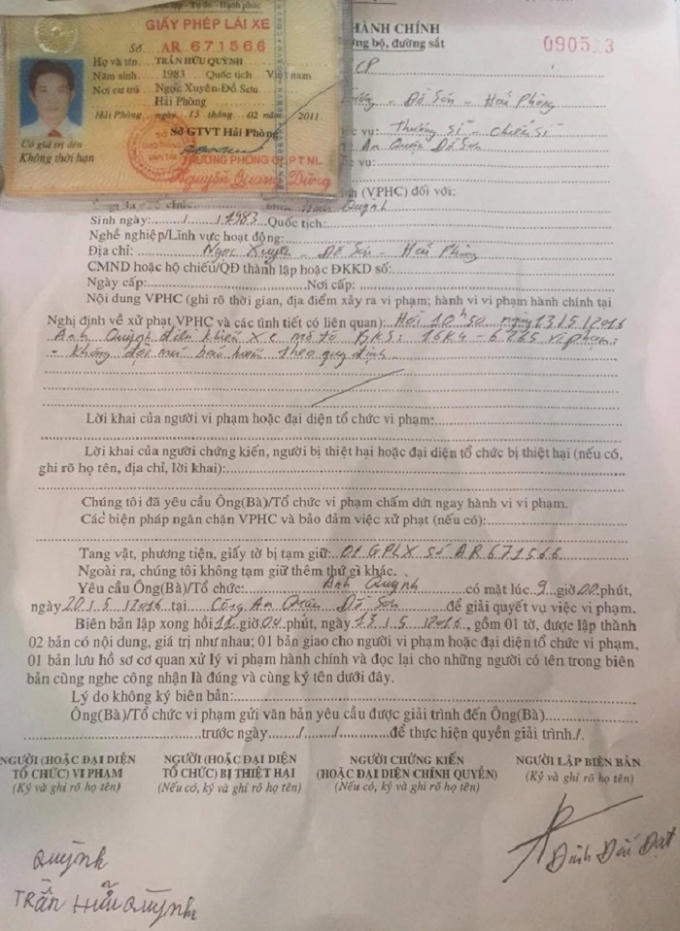 Độc lập - Tự do - Hạnh phúc
GIẤY PHÉP LÁI XE
Số AR 671566
Họ và tên TRẦN HỮU QUỲNH
Năm sinh 1983 Quốc tịch Việt nam
Nơi cư trú Ngọc Xuyên-Đồ Sơn
Hải Phòng
Hải Phòng ngày 15 tháng 02 năm 2011
Sở GTVT Hải Phòng
Có giá trị đến
Không thời hạn
TRƯỞNG PHÒNG QLPT NL
Nguyễn Quang Dũng
HÀNH CHÍNH
ng bộ, đường sắt
CP
Đồ Sơn - Hải Phòng
vụ: Thượng sĩ - Chiến sĩ
An Quận Đồ Sơn
vụ:
(VPHC) đối với:
Hữu Quỳnh
Sinh ngày:..../..../1983 Quốc tịch:
Nghề nghiệp/Lĩnh vực hoạt động:
Địa chỉ: Ngọc Xuyên - Đồ Sơn - Hải Phòng
CMND hoặc hộ chiếu/QĐ thành lập hoặc ĐKKD số:
Ngày cấp: Nơi cấp:
Nội dung VPHC (ghi rõ thời gian, địa điểm xảy ra vi phạm; hành vi vi phạm hành chính tại
Nghị định về xử phạt VPHC và các tình tiết có liên quan): Hồi 10h50 ngày 13/5/2016
Anh Quỳnh điều khiển xe mô tô BKS: 16K4 - 6265 vi phạm:
- Không đội mũ bảo hiểm theo quy định.
Lời khai của người vi phạm hoặc đại diện tổ chức vi phạm:
Lời khai của người chứng kiến, người bị thiệt hại hoặc đại diện tổ chức bị thiệt hại (nếu có,
ghi rõ họ tên, địa chỉ, lời khai):
Chúng tôi đã yêu cầu Ông(Bà)/Tổ chức vi phạm chấm dứt ngay hành vi vi phạm.
Các biện pháp ngăn chặn VPHC và bảo đảm việc xử phạt (nếu có):
Tang vật, phương tiện, giấy tờ bị tạm giữ: 01 GPLX số AR 671566
Ngoài ra, chúng tôi không tạm giữ thêm thứ gì khác.
Yêu cầu Ông(Bà)/Tổ chức: Anh Quỳnh có mặt lúc 9 giờ 00 phút,
ngày 20/5/2016 tại Công An Quận Đồ Sơn để giải quyết vụ việc vi phạm.
Biên bản lập xong hồi 11 giờ 04 phút, ngày 13/5/2016, gồm 01 tờ, được lập thành
02 bản có nội dung, giá trị như nhau; 01 bản giao cho người vi phạm hoặc đại diện tổ chức vi phạm,
01 bản lưu hồ sơ cơ quan xử lý vi phạm hành chính và đọc lại cho những người có tên trong biên
bản cùng nghe công nhận là đúng và cùng ký tên dưới đây.
Lý do không ký biên bản:
Ông(Bà)/Tổ chức vi phạm gửi văn bản yêu cầu được giải trình đến Ông(Bà)
trước ngày..../..../.... để thực hiện quyền giải trình./.
NGƯỜI (HOẶC ĐẠI DIỆN TỔ CHỨC) VI PHẠM
(Ký và ghi rõ họ tên)
NGƯỜI (HOẶC ĐẠI DIỆN TỔ CHỨC) BỊ THIỆT HẠI
(Nếu có, ký và ghi rõ họ tên)
NGƯỜI CHỨNG KIẾN (HOẶC ĐẠI DIỆN CHÍNH QUYỀN)
(Nếu có, ký và ghi rõ họ tên)
NGƯỜI LẬP BIÊN BẢN
(Ký và ghi rõ họ tên)
Quỳnh
Trần Hữu Quỳnh
Đạt